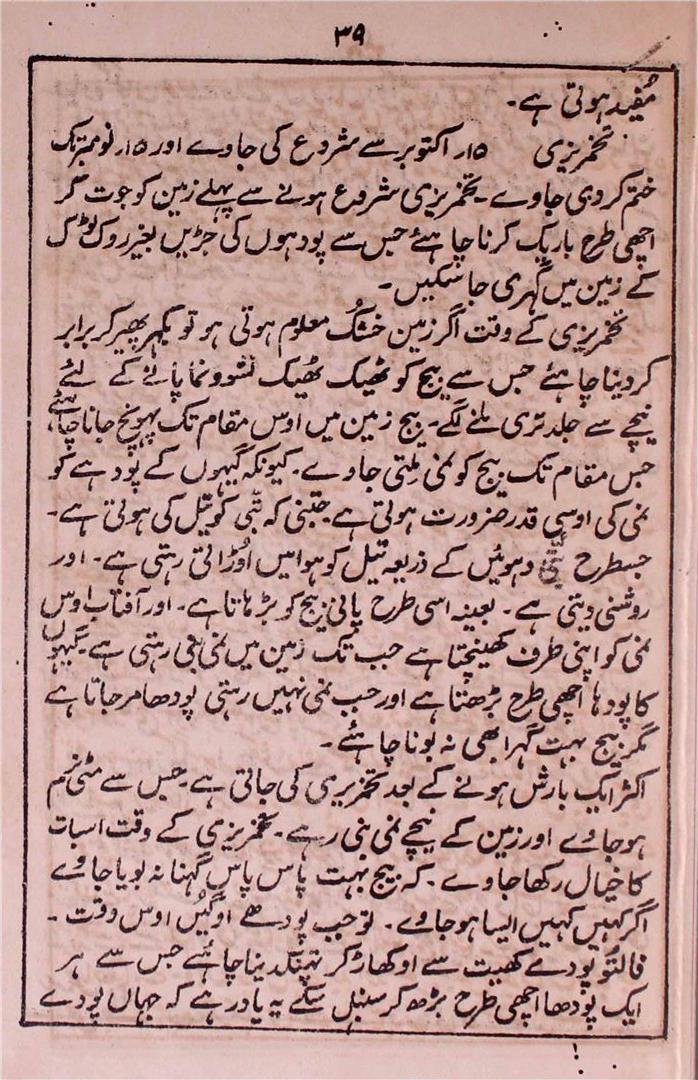 ۳۹
مُفید ہوتی ہے۔
تخمریزی ۱۵۔ اکتوبر سے شروع کی جاوے اور ۱۵۔ نومبر تک
ختم کر دی جاوے۔ تخمریزی شروع ہونے سے پہلے زمین کو جوت کر
اچھی طرح باریک کرنا چاہئے جس سے پودہوں کی جڑیں بغیر روک ٹوک
کے زمین میں گہری جا سکیں۔
تخمریزی کے وقت اگر زمین خشک معلوم ہوتی ہو تو پھیر کر برابر
کر دینا چاہئے جس سے بیج کو ٹھیک ٹھیک نشوونما پانے کے لئے
نیچے سے جلد تری ملنے لگے۔ بیج زمین میں اوس مقام تک پہونچ جانا چاہئے
جس مقام تک بیج کو نمی ملتی جاوے۔ کیونکہ گیہوں کے پودہے کو
نمی کی اوسی قدر ضرورت ہوتی ہے جتنی کہ بتّی کو تیل کی ہوتی ہے۔
جسطرح بتّی دہوئیں کے ذریعہ تیل کو ہوا میں اوڑاتی رہتی ہے۔ اور
روشنی دیتی ہے۔ بعینہ اسی طرح پانی بیج کو بڑہاتا ہے۔ اور آفتاب اوس
نمی کو اپنی طرف کھینچتا ہے جب تک زمین میں نمی بنی رہتی ہے۔ گیہوں
کا پودہا اچھی طرح بڑھتا ہے اور جب نمی نہیں رہتی پودھا مر جاتا ہے
مگر بیج بہت گہرا بھی نہ بونا چاہئے۔
اکثر ایک بارش ہونے کے بعد تخمریزی کی جاتی ہے۔ جس سے مٹی نم
ہو جاوے اور زمین کے نیچے نمی بنی رہے۔ تخمریزی کے وقت اسبات
کا خیال رکھا جاوے۔ کہ بیج بہت پاس پاس گہنا نہ بویا جاوے
اگر کہیں کہیں ایسا ہو جاوے۔ تو جب پودھے اوگیں اوس وقت۔
فالتو پودے کھیت سے اوکھاڑ کر پھینکدینا چاہئے جس سے ہر
ایک پودھا اچھی طرح بڑھ کر سنبل سکے یہ یاد رہے کہ جہاں پودے